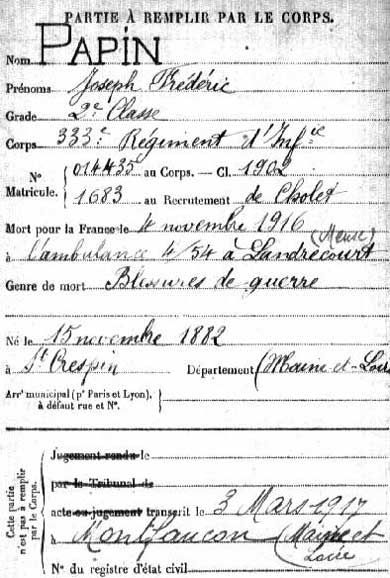 PARTIE À REMPLIR PAR LE CORPS.
Nom PAPIN
Prénoms Joseph Frédéric
Grade 2e Classe
Corps 333e Régiment d'Infie
N° Matricule. { 014435 au Corps. — Cl. 1902
1683 au Recrutement de Cholet
Mort pour la France le 4 novembre 1916
à l'ambulance 4/54 à Landrecourt (Meuse)
Genre de mort Blessures de guerre
Né le 15 novembre 1882
à St Crespin Département (Maine-et-Loire
Arrt municipal (pr Paris et Lyon), }
à défaut rue et N°.
Cette partie n'est pas à remplir par le Corps.
Jugement rendu le
par le Tribunal de
acte ou jugement transcrit le 3 Mars 1917
à Montfaucon (Maine et
Loire
N° du registre d'état civil